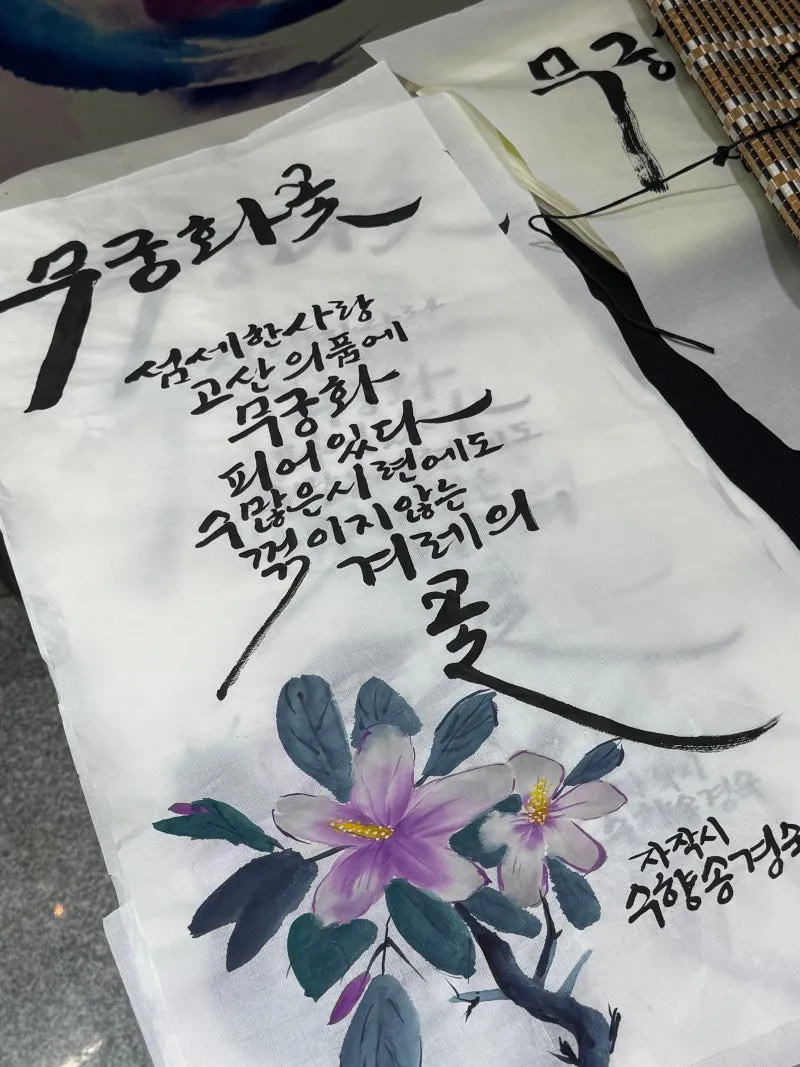 무궁화꽃
섬세한사랑
고산의품에
무궁화
피어있다
수많은시련에도
꺾이지않는
겨레의
꽃
자작시
수향송경숙
무궁